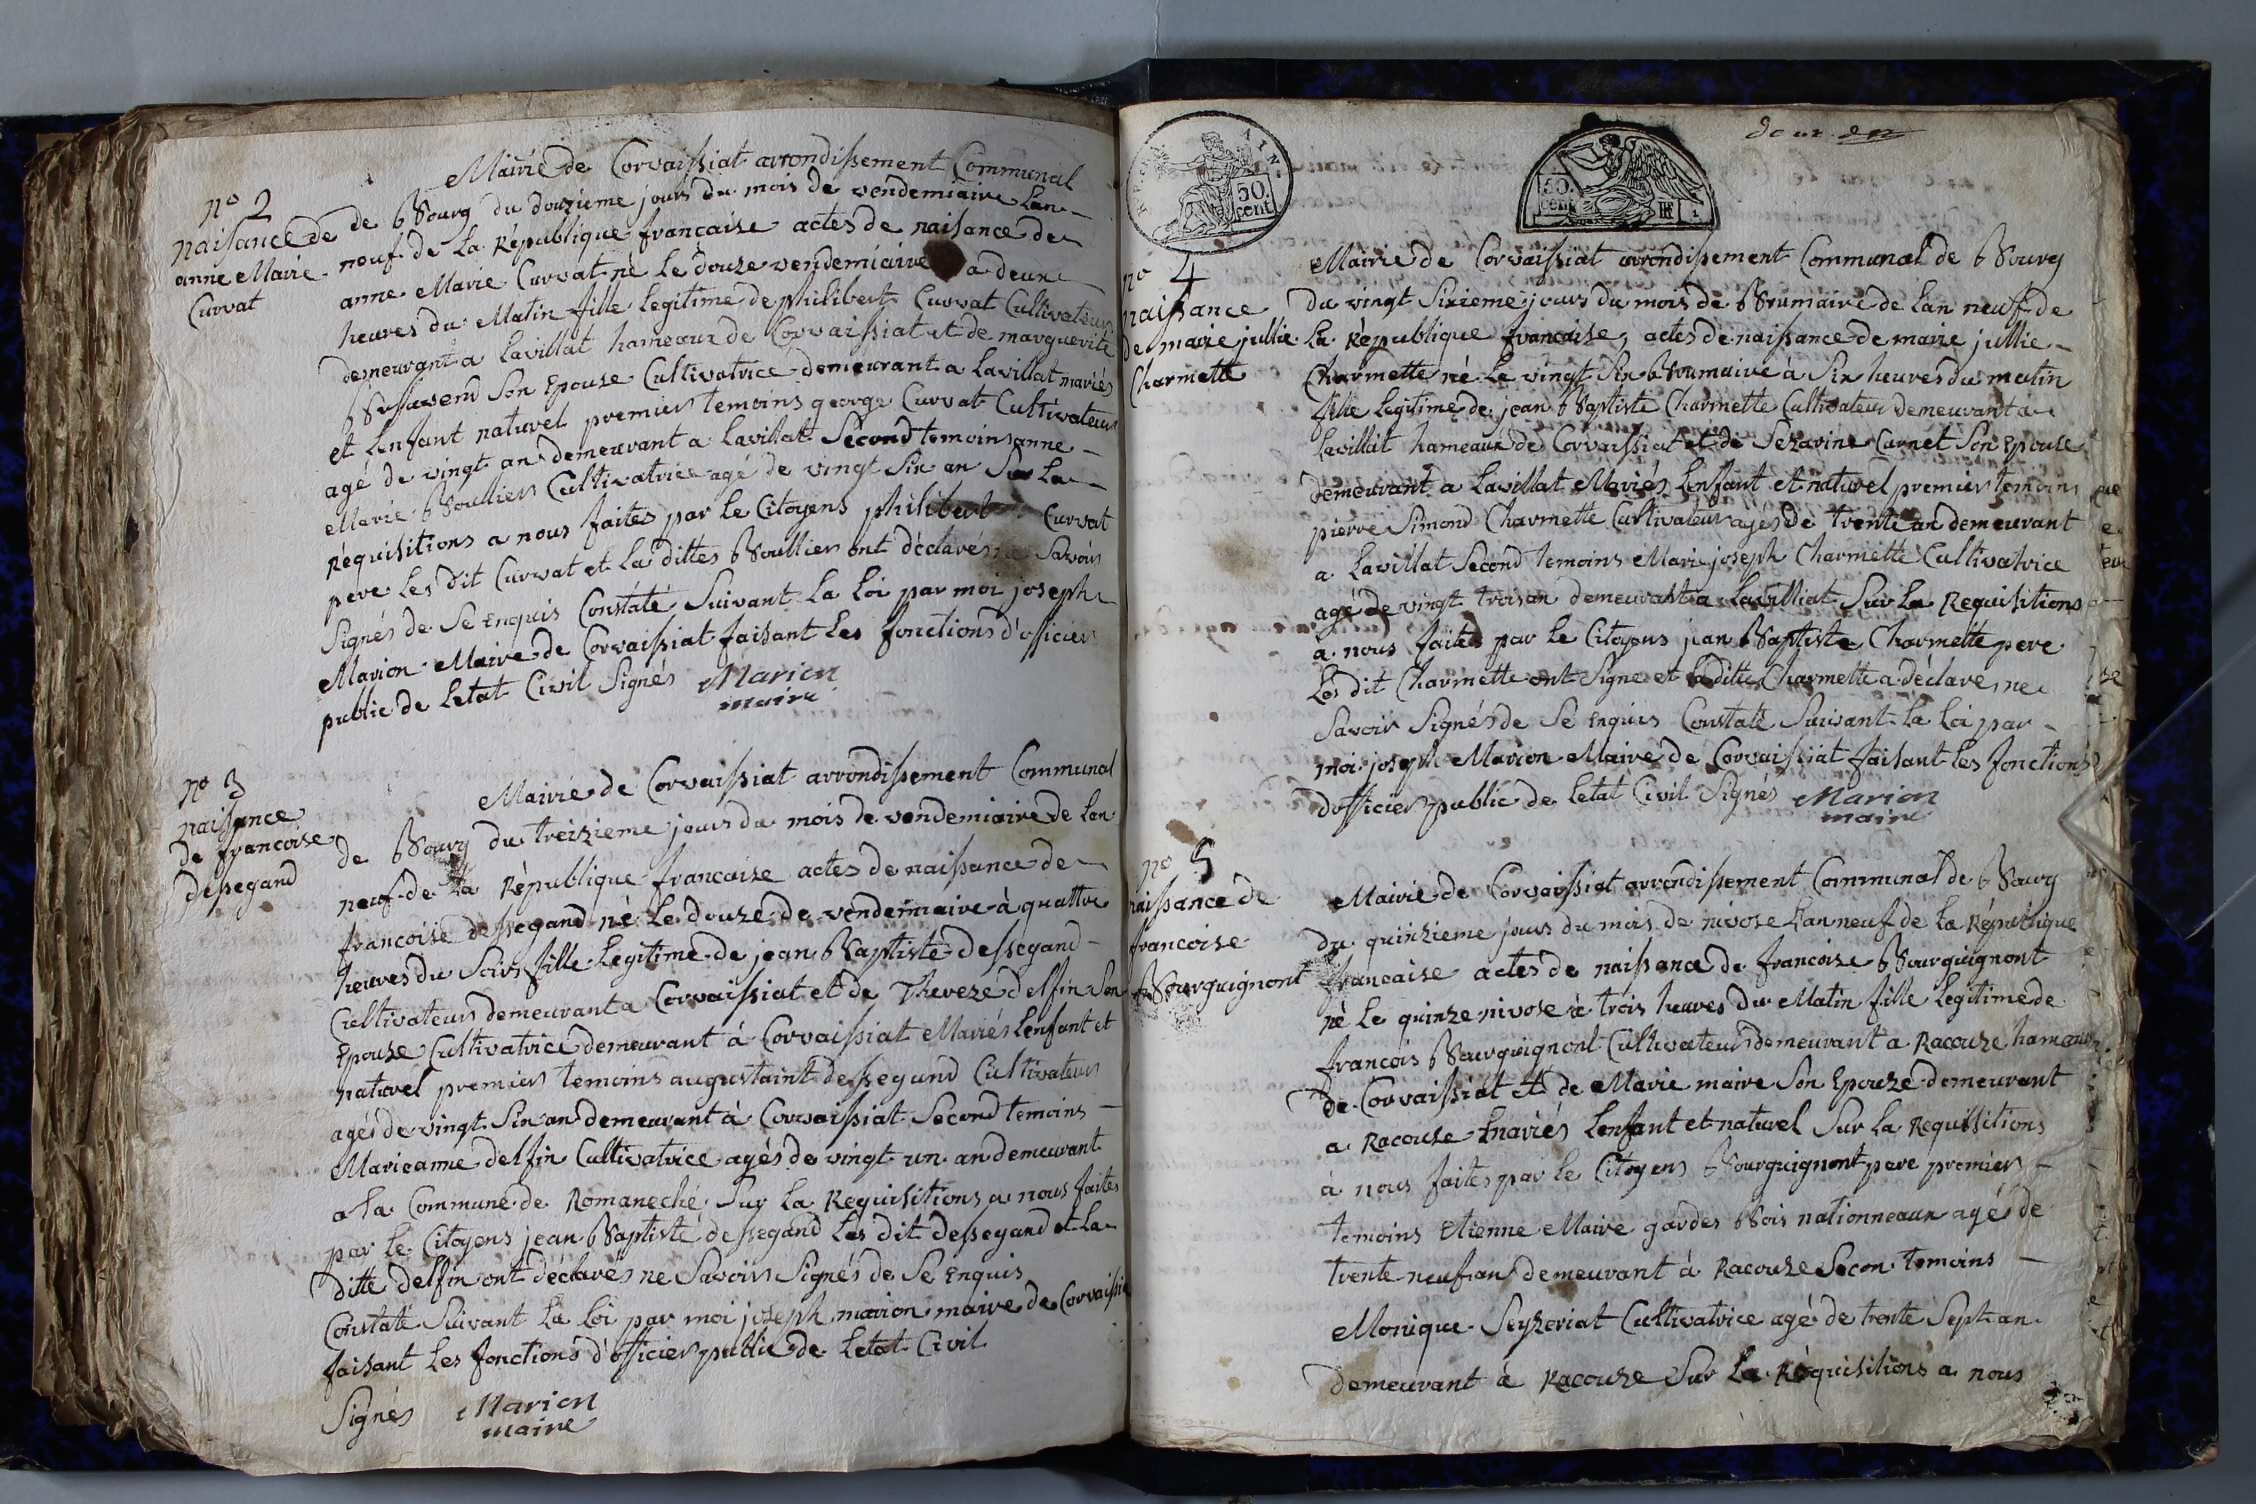 Mairie de Corvaissiat arrondissement Communal
no 2
naisance de
anne Marie
Curvat
de Bourg du douzieme jours du mois de vendemiaire Lan
neuf de La République francaise actes de naisance de
anne Marie Curvat né Le douze vendemiaire a deux
heures du Matin fille Legitime de philibert Curvat Cultivateur
demeurant a Lavillat hameaux de Corvaissiat et de marguerite
son Epouse Cultivatrice demeurant a Lavillat mariés
et Lenfant naturel premiers temoins george Curvat Cultivateur
agé de vingt an demeurant a Lavillat Second temoins anne
Marie Boulliers Cultivatrice agé de vingt Six an Sur La
réquisitions a nous faites par Le Citoyens philibert Curvat
pere Les dit Curvat et La dittes Boulliers ont déclarés ne Savoirs
Signés de Se Enquis Constaté Suivant La Loi par moi joseph
Marion Maire de Corvaissiat faisant Les fonctions d'officiers
public de Letat Civil Signés Marion
maire
no 3
naissance
de francoise
dessegand
Mairie de Corvaissiat arrondissement Communal
de Bourg du treizieme jours du mois de vendemiaire de Lan
neuf de La République francaise actes de naissance de
francoise dessegand né Le douze de vendemiaire à quattre
heures du Soirs fille Legitime de jean Baptiste dessegand
Cultivateurs demeurant a Corvaissiat et de Thereze delfin Son
Epouse Cultivatrice demeurant à Corvaissiat Mariés Lenfant et
naturel premiers temoins augustaint dessegand Cultivateurs
agés de vingt Six an demeurant à Corvaissiat Second temoins
Marieanne delfin Cultivatrice agés de vingt un an demeurant
a La Commune de Romaneche Sur La Requisitions a nous faites
par Le Citoyens jean Baptiste dessegand Les dit dessegand et La
ditte delfin ont déclarés ne Savoirs Signés de Se Enquis
Constaté Suivant La Loi par moi joseph marion maire de Corvaissia
faisant Les fonctions d'officiers public de Letat Civil
Signés Marion
maire
50.
cent
50.
cent
no 4
naissance
de marie jullie
Charmette
Mairie de Corvaissiat arrondissement Communal de Bourg
du vingt Sixieme jours du mois de Brumaire de Lan neuf de
La République francaise, actes de naissance de marie jullie
Charmette né Le vingt Six Brumaire à Six heures du matin
fille Legitime de jean Baptiste Charmette Cultivateur demeurant a
Lavillat hameaux de Corvaissiat et de Sezarine Carnet Son Epouse
demeurant a Lavillat Mariés Lenfant et naturel premiers temoins
pierre Simond Charmette Cultivateurs agés de trente an demeurant
a Lavillat Second temoins Marie joseph Charmette Cultivatrice
agé de vingt trois an demeurant a Lavilliat Sur La Requisitions
a nous faites par Le Citoyens jean Baptiste Charmette pere
Les dit Charmette ont Signe et la ditte Charmette a déclare, ne
Savoir Signés de Se Enquis Constate Suivant La Loi par
moi joseph Marion Maire de Corvaissiat faisant Les fonctions
dofficiers public de Letat Civil Signés Marion
maire
no 5
naissance de
francoise
Bourguignont
Mairie de Corvaissiat arrondissement Communal de Bourg
du quinzieme jours du mois de nivose Lan neuf de La République
francaise actes de naissance de francoise Bourguignont
né Le quinze nivose à trois heures du Matin fille Legitime de
francois Bourguignont Cultivateurs demeurant a Racouze hameaux
de Corvaissiat et de Marie maire Son Epouze demeurant
a Racouze mariés Lenfant et naturel Sur La Requisitions
à nous faites par Le Citoyens Bourguignont pere premiers
temoins Etienne Maire gardes Bois nationneaux agés de
trente neuf an demeurant à Racouze Secon temoins
Monique Seyzeriat Cultivatrice agé de trente Sept an
demeurant à Racouze Sur La Réquisitions a nous